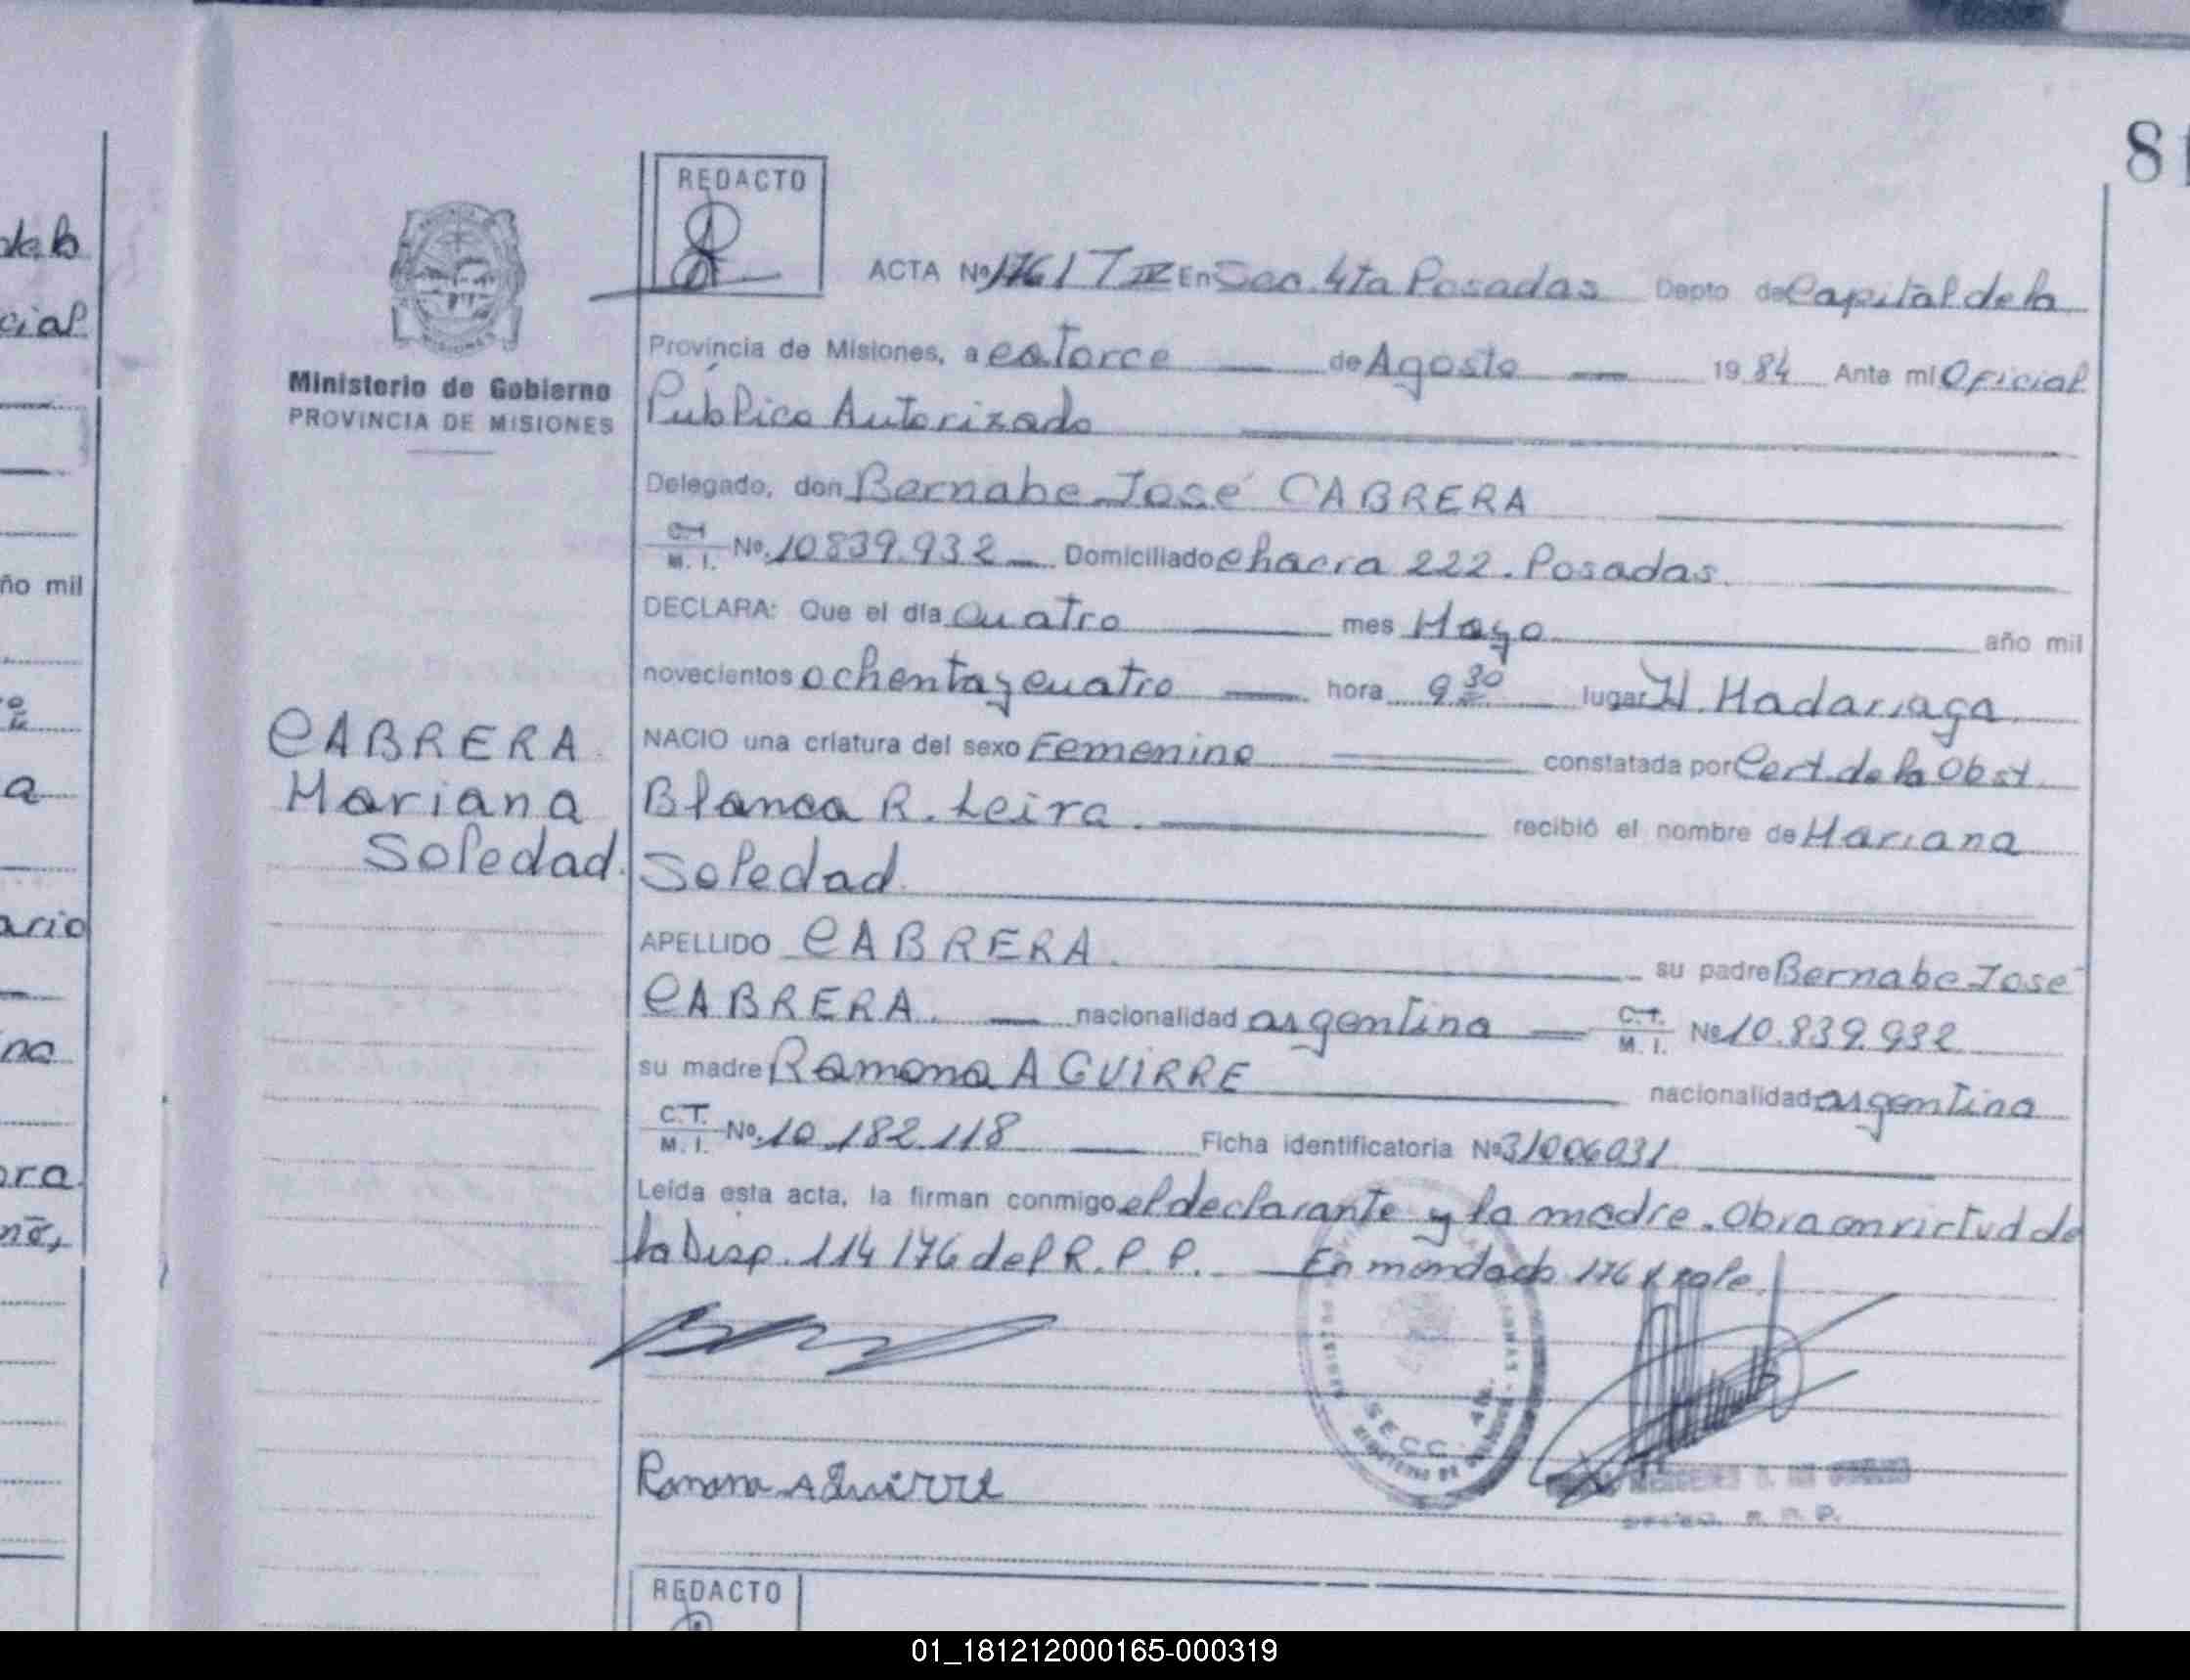 81
de la
cial
ño mil
a
ario
na
ora
REDACTO
ACTA Nº 1761 T IV En Sec. 4ta Posadas Depto de Capital de la
Provincia de Misiones, a catorce de Agosto 1984 Ante mi Oficial
Público Autorizado
Ministerio de Gobierno
PROVINCIA DE MISIONES
Delegado, don Bernabe José CABRERA
C.I. M. I. Nº 10839.932 Domiciliado chacra 222. Posadas
DECLARA: Que el día cuatro mes Mayo año mil
novecientos ochenta y cuatro hora 9 30 lugar H. Madariaga
CABRERA
Mariana
Soledad.
NACIO una criatura del sexo Femenino constatada por Cert. de la Obst.
Blanca R. Leira. recibió el nombre de Mariana
Soledad
APELLIDO CABRERA. su padre Bernabe José
CABRERA. nacionalidad argentina C.T. M. I. Nº 10.839.932
su madre Ramona AGUIRRE nacionalidad argentina
C.T. M. I. Nº 10.182.118 Ficha identificatoria Nº 31006031
Leída esta acta, la firman conmigo el declarante y la madre. Obra en virtud de
la Disp. 114/76 del R. P. P. En mendado 1761 vale.
SECC. 4ta.
Ramona Aguirre
R. P. P.
REDACTO
01_181212000165-000319